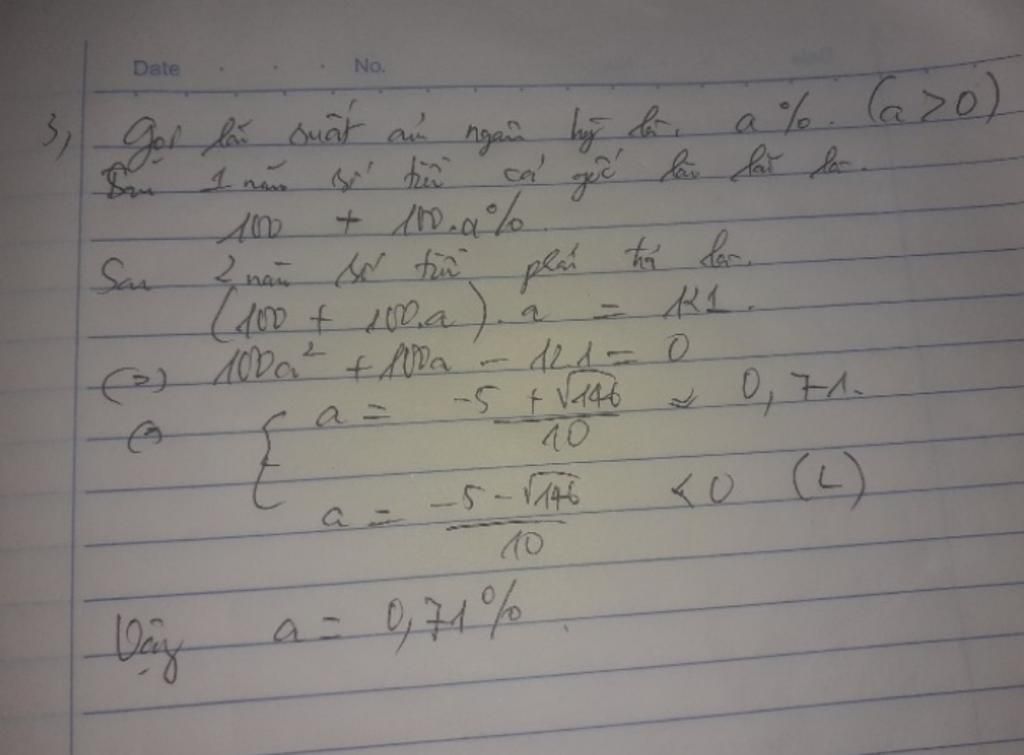 Date . . . No.
3, Gọi lãi suất của ngân hàng là. a%. (a > 0)
Sau 1 năm số tiền cả gốc lẫn lãi là.
100 + 100.a%
Sau 2 năm số tiền phải trả là.
(100 + 100.a).a = 121.
(=) 100a² + 100a - 121 = 0
(=) { a = (-5 + √146)/10 ≈ 0,71.
a = (-5 - √146)/10 < 0 (L)
Vậy a = 0,71%.